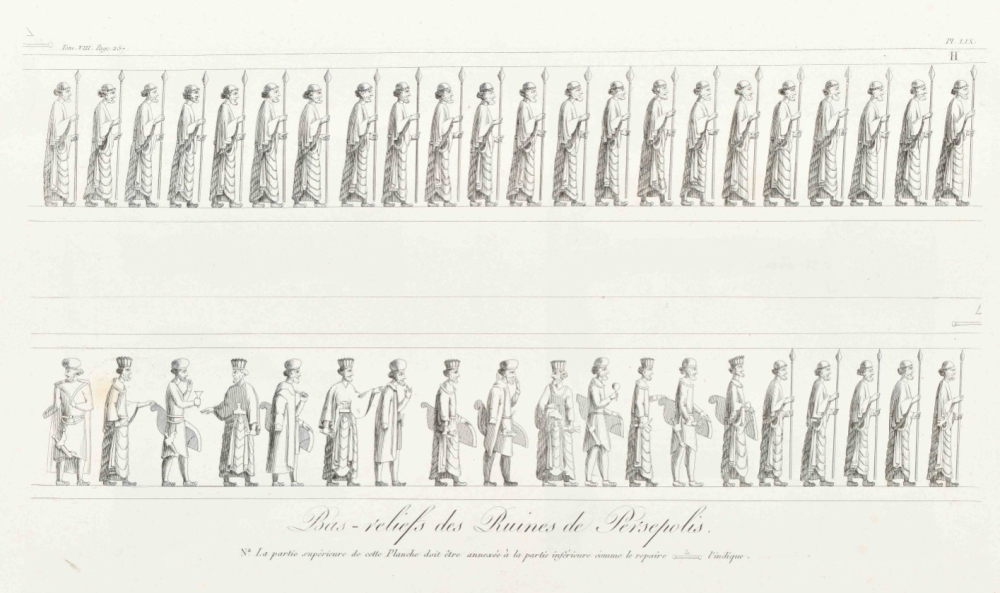 Tom. VIII. Page. 267.
Pl. LIX.
H
Bas-reliefs des Ruines de Persepolis.
Nª La partie supérieure de cette Planche doit être annexée à la partie inférieure comme le repaire l'indique.